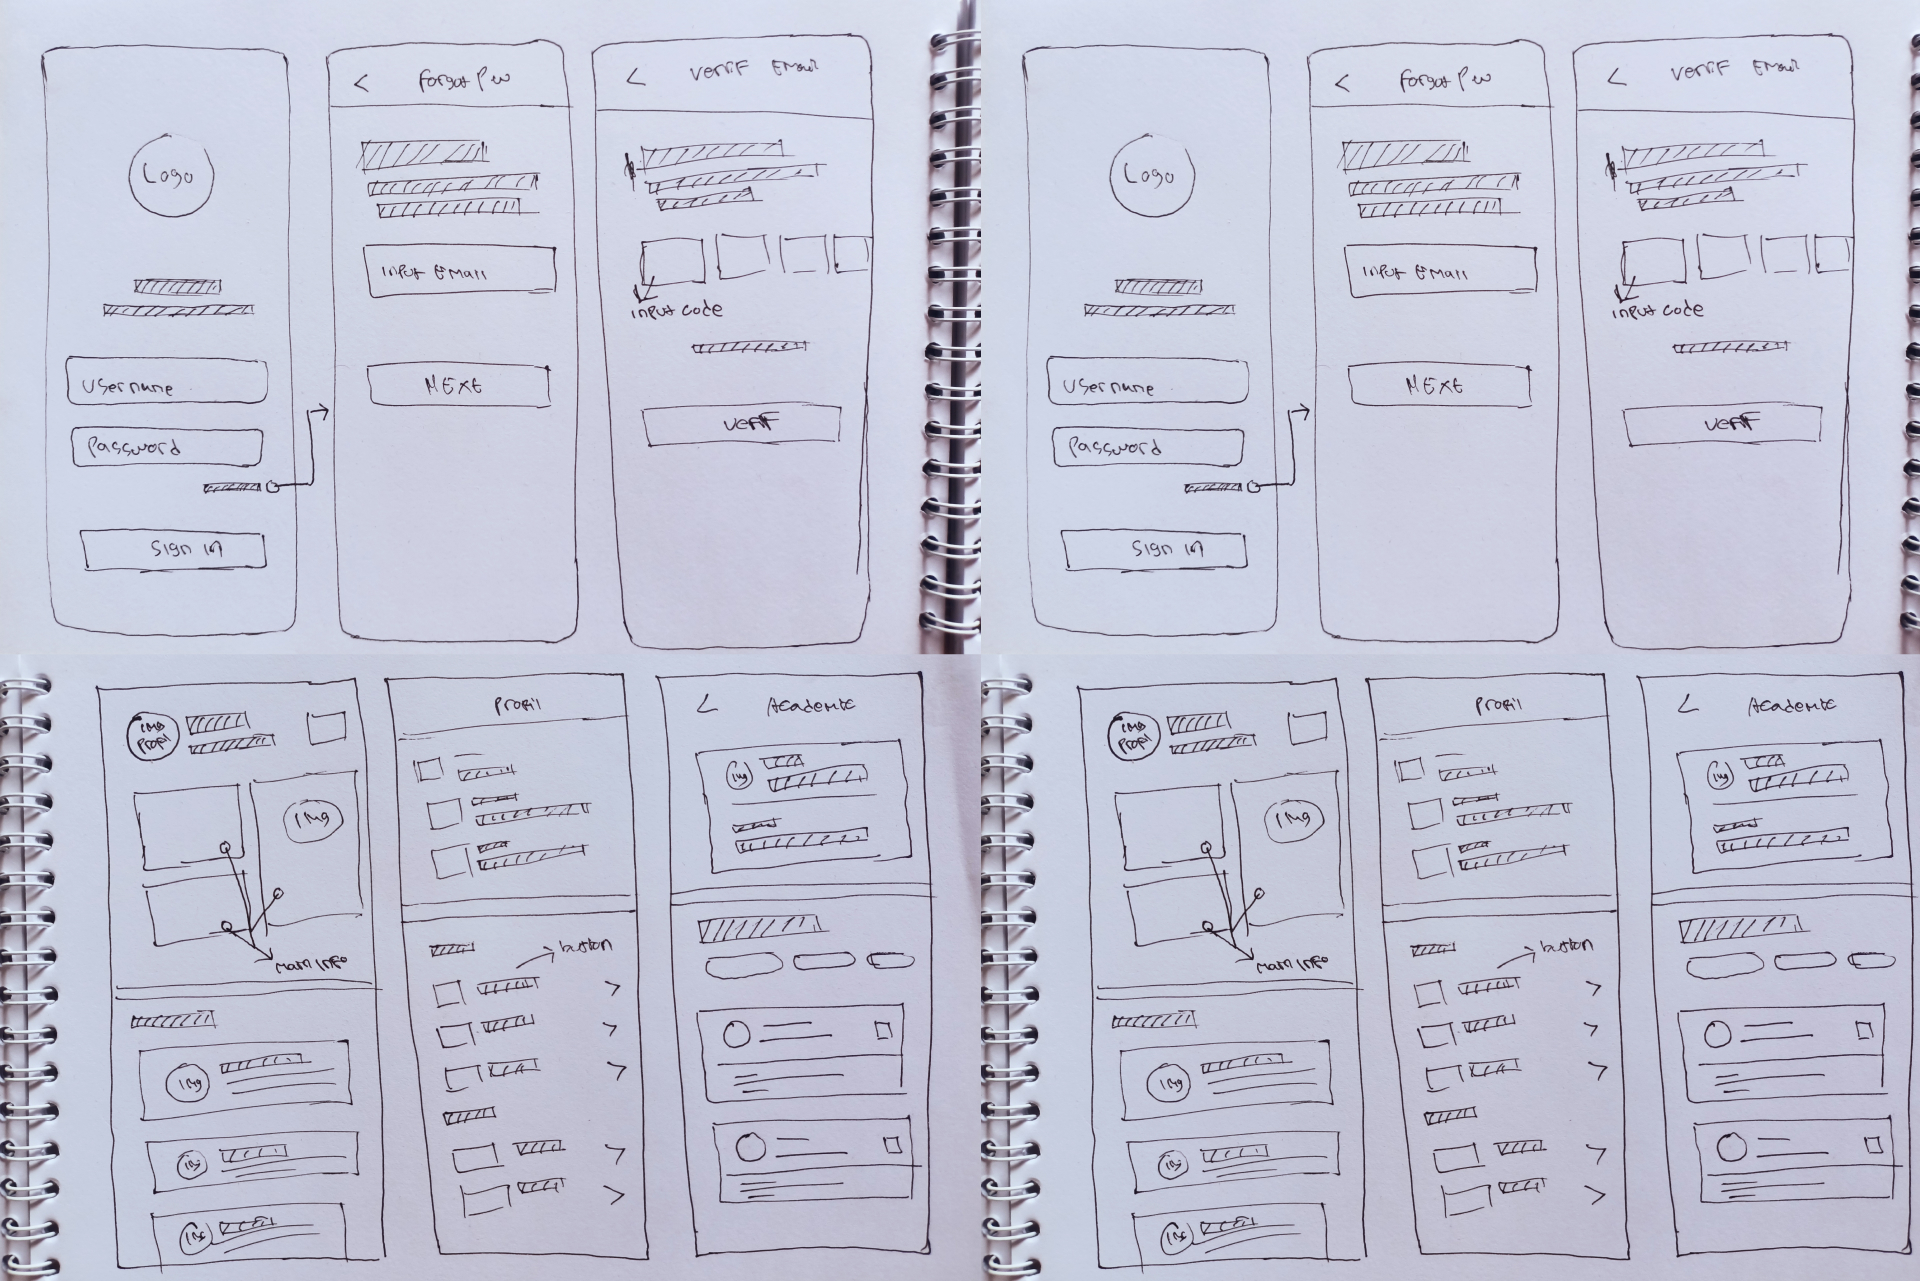 Logo
Username
Password
Sign in
< Forgot Pw
Input Email
NEXt
< Verif Email
Input code
Verif
Logo
Username
Password
Sign in
< Forgot Pw
Input Email
NEXt
< Verif Email
Input code
Verif
IMG
Profil
IMg
Main Info
IMg
IMg
IMg
Profil
button
< Academic
IMg
IMG
Profil
IMg
Main Info
IMg
IMg
IMg
Profil
button
< Academic
IMg